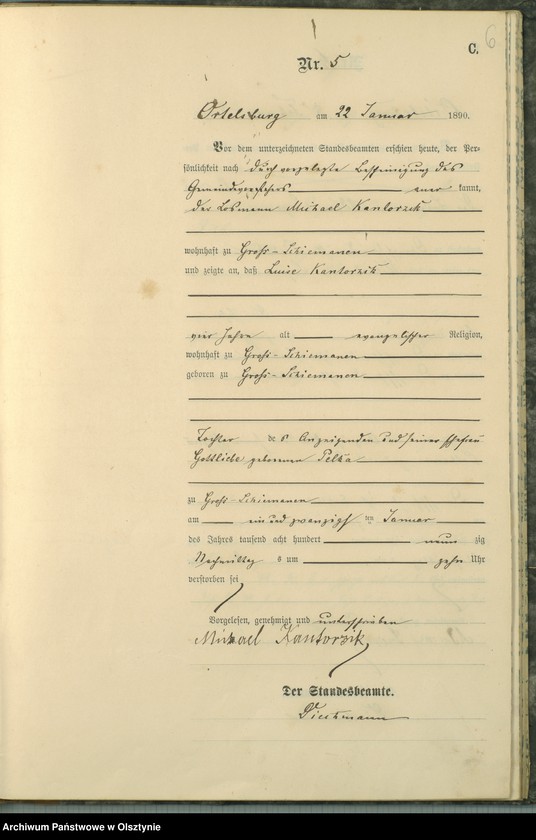 6
C.
Nr. 5
Ortelsburg am 22 Januar 1890.
Vor dem unterzeichneten Standesbeamten erschien heute, der Per-
sönlichkeit nach durch vorgelegte Bescheinigung des
Gemeindevorstehers aner kannt,
der Losmann Michael Kantorzik
wohnhaft zu Groß-Schiemanen
und zeigte an, daß Luise Kantorzik
vier Jahre alt evangelischer Religion,
wohnhaft zu Groß-Schiemanen
geboren zu Groß-Schiemanen
Tochter des Anzeigenden und seiner Ehefrau
Gottliebe geborenen Pelka
zu Groß-Schiemanen
am ein und zwanzigsten Januar
des Jahres tausend acht hundert neun zig
Nachmittags um zehn Uhr
verstorben sei
Vorgelesen, genehmigt und unterschrieben
Michael Kantorzik
Der Standesbeamte.
Archiwum Państwowe w Olsztynie